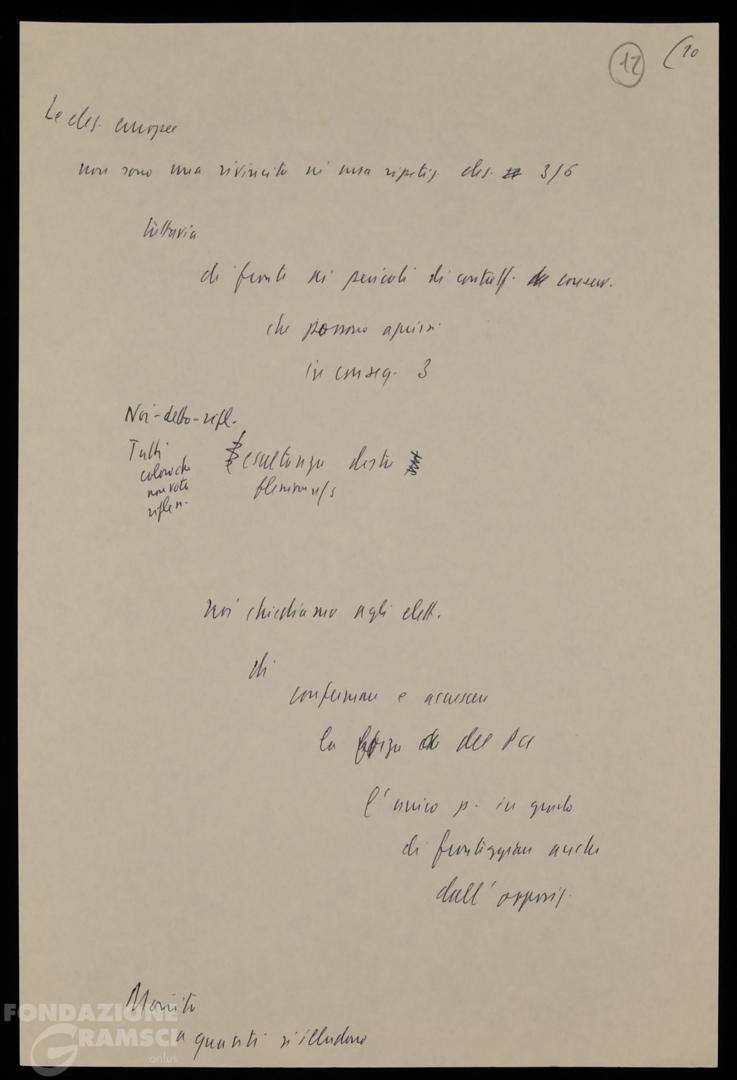 12 (10
Le elez. europee
non sono una rivincita né una ripetiz. elez. 3/6
Tuttavia
di fronte ai pericoli di contratt. conserv.
che possono aprirsi
in conseg. 3
Noi - detto - rifl.
Tutti
coloro che
non voto
riflen.
esultanza destra
di
confermare e accrescere
la forza del Pci
l'unico p. in grado
di fronteggiare anche
dall'opposiz.
noi chiediamo agli elett.
Monito
a quanti si illudono
FONDAZIONE
GRAMSCI
onlus